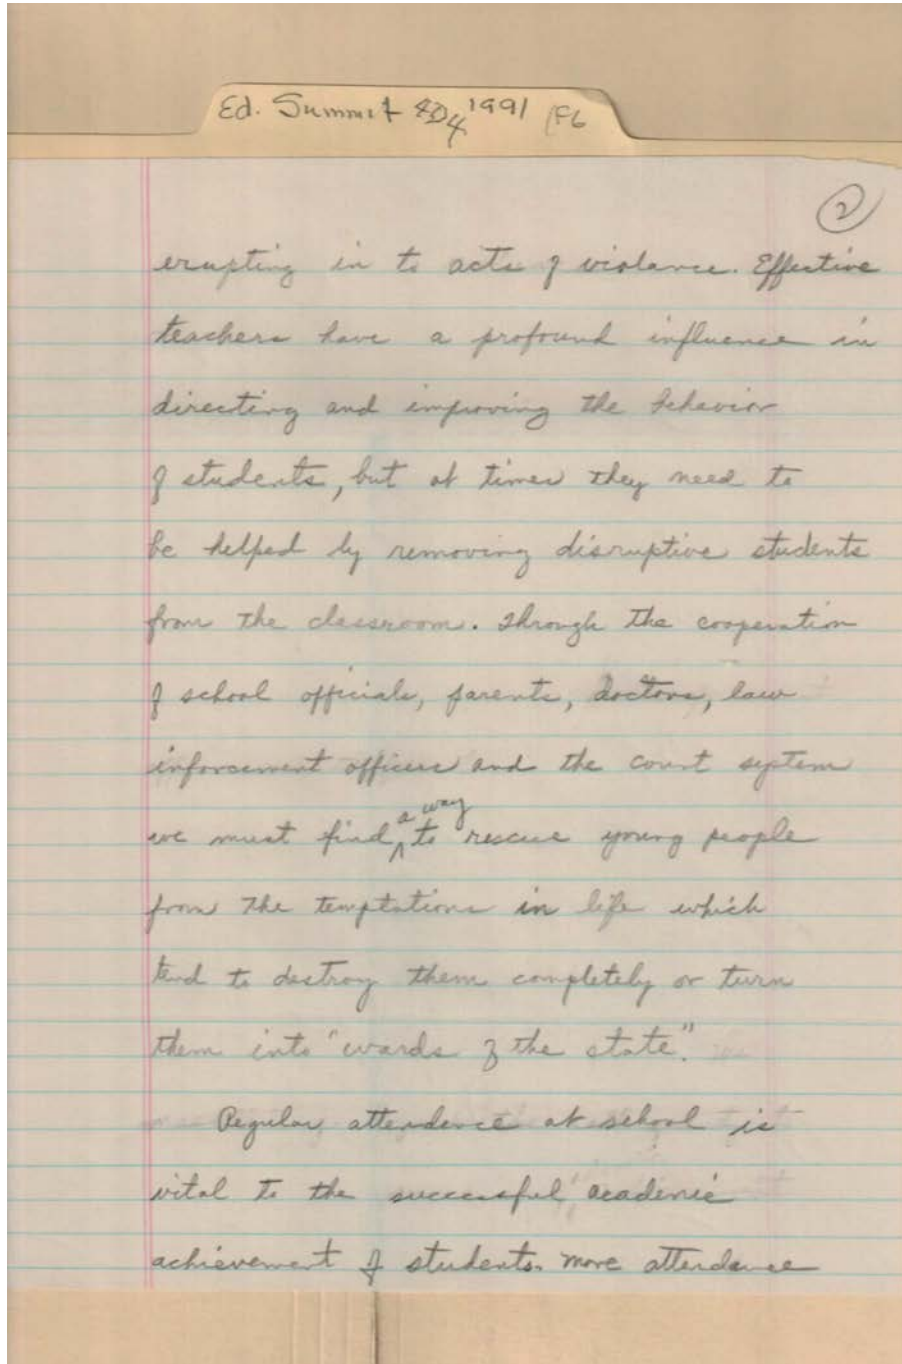 Ed. Summit 1991
2
erupting in to acts of violance. Effective
teachers have a profound influence in
directing and improving the behavior
of students, but at times they need to
be helped by removing disruptive students
from the classroom. Through the cooperation
of school officials, parents, doctors, law
inforcement officers and the court system
we must find a way to rescue young people
from the temptations in life which
tend to destroy them completely or turn
them into "wards of the state".
Regular attendence at school is
vital to the successful academic
achievement of students. more attendance